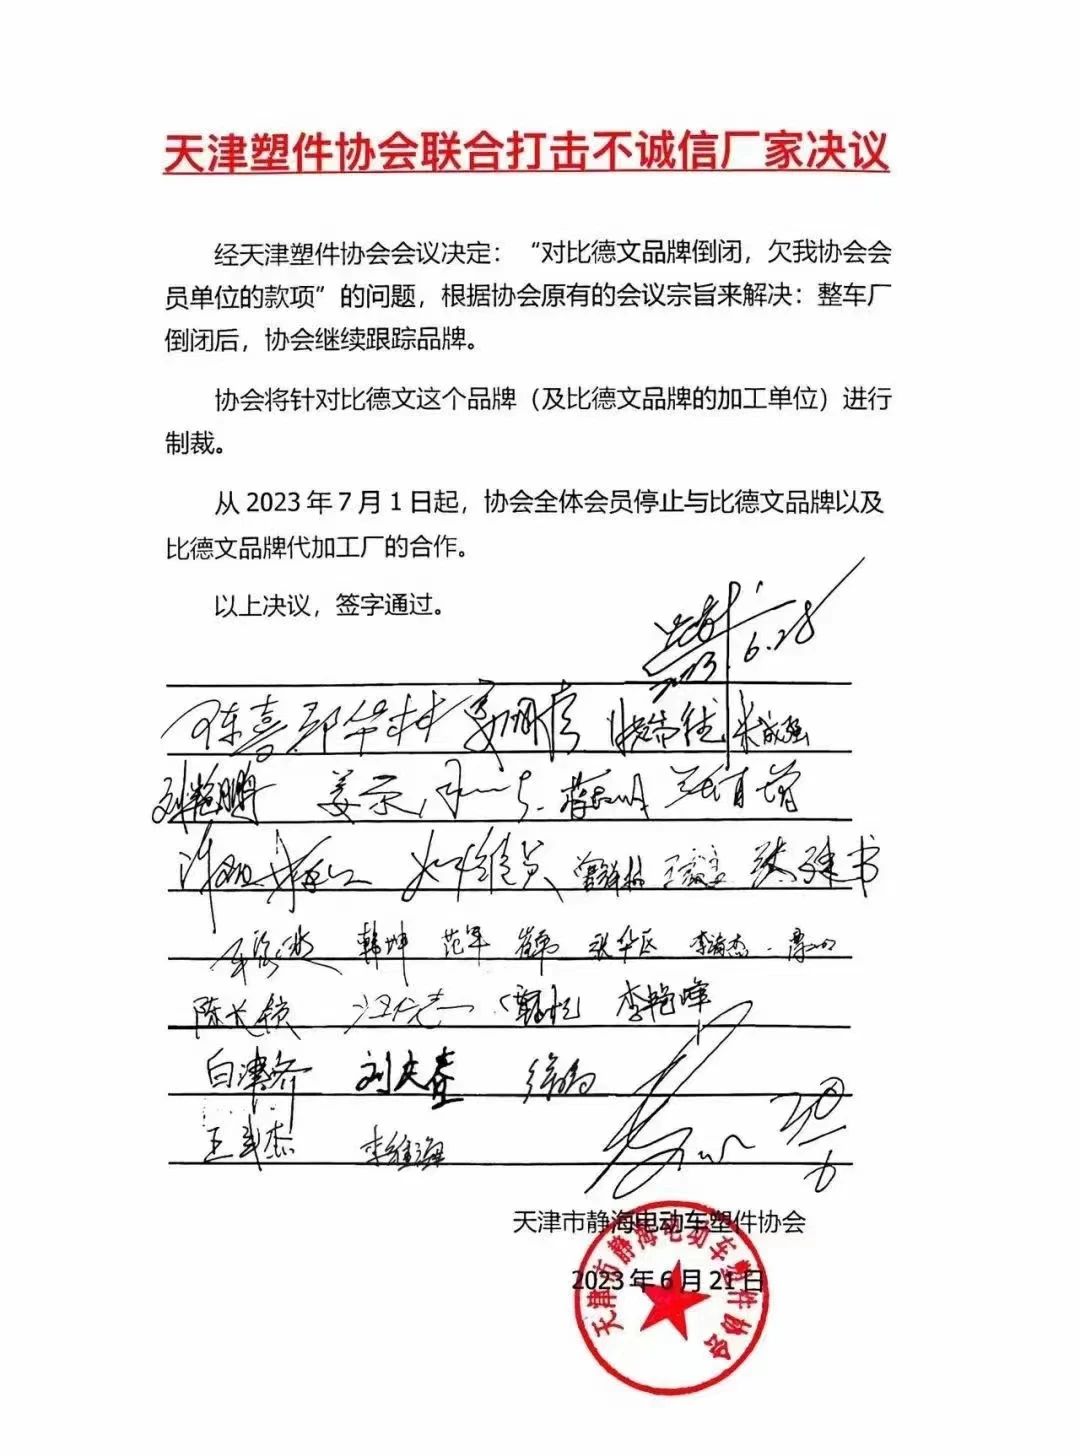 天津塑件协会联合打击不诚信厂家决议
经天津塑件协会会议决定：“对比德文品牌倒闭，欠我协会会
员单位的款项”的问题，根据协会原有的会议宗旨来解决：整车厂
倒闭后，协会继续跟踪品牌。
协会将针对比德文这个品牌（及比德文品牌的加工单位）进行
制裁。
从 2023 年 7 月 1 日起，协会全体会员停止与比德文品牌以及
比德文品牌代加工厂的合作。
以上决议，签字通过。
6.28
陈喜 邹华材
刘艳鹏 姜示
韩坤 范军 张华臣 李海杰
陈长锁 汪仁志 李艳峰
白津乔 刘大春 徐鹏
王式杰 李维海
天津市静海电动车塑件协会
2023 年 6 月 21 日
天津市静海电动车塑件协会